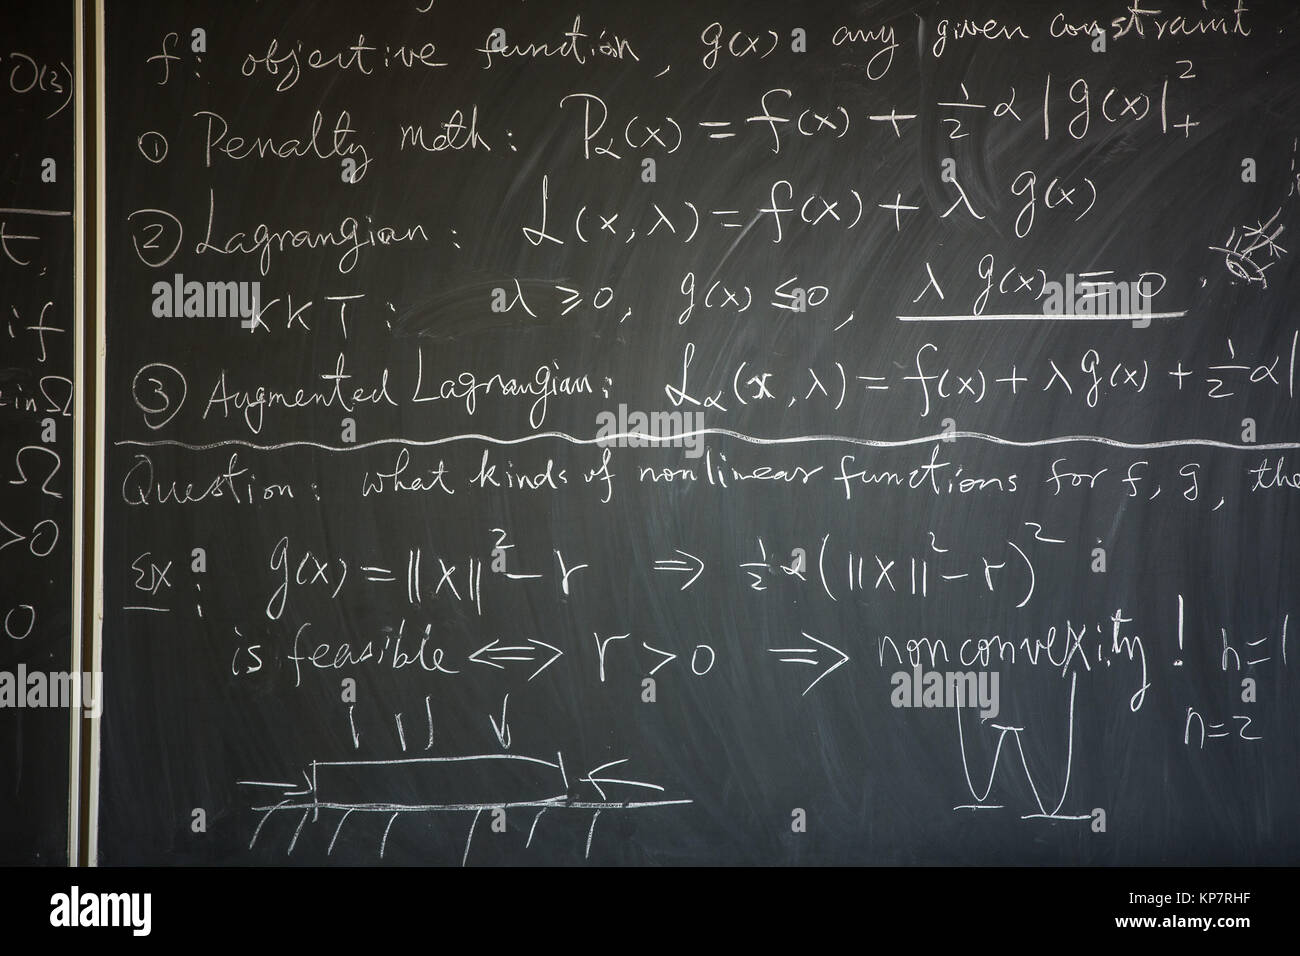 O(3)
t,
if
in Ω
Ω
>0
0
f: objective function, g(x) any given constraint.
① Penalty meth: Pα(x) = f(x) + ½ α |g(x)|²₊
② Lagrangian: L(x, λ) = f(x) + λ g(x)
KKT: λ ≥ 0, g(x) ≤ 0, λ g(x) = 0.
③ Augmented Lagrangian: Lα(x, λ) = f(x) + λ g(x) + ½ α |
Question: what kinds of nonlinear functions for f, g, the
Ex: g(x) = ||x||² - r ⇒ ½ α (||x||² - r)²
is feasible ⇔ r > 0 ⇒ nonconvexity! n=1
n=2
a alamy stock photo
alamy
Image ID: KP7RHF
www.alamy.com